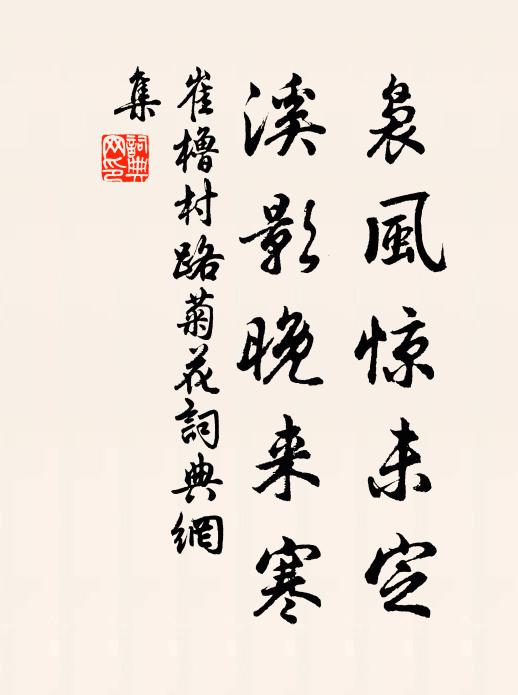 裊風惊未定
溪影晚来寒
崔櫓村路菊花詞典網
集
詞典
网印